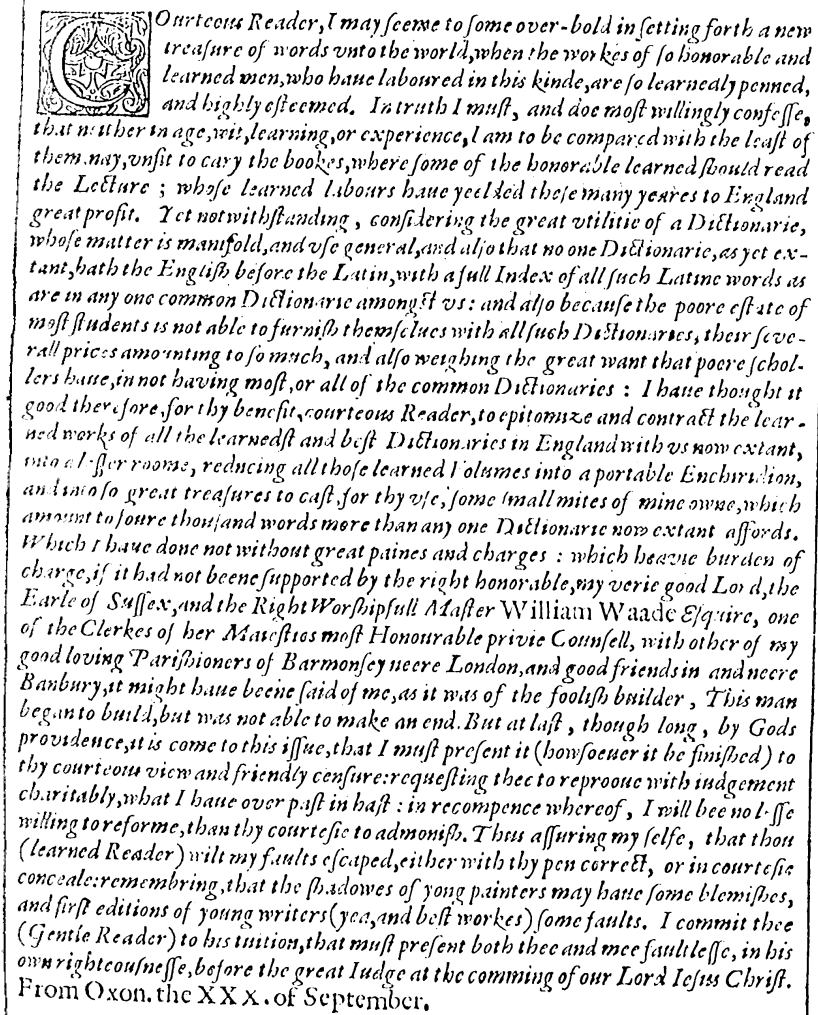 COurteous Reader, I may seeme to some over-bold in setting forth a new
treasure of words vnto the world, when the workes of so honorable and
learned men, who haue laboured in this kinde, are so learnedly penned,
and highly esteemed. In truth I must, and doe most willingly confesse,
that neither in age, wit, learning, or experience, I am to be compared with the least of
them, nay, vnfit to cary the bookes, where some of the honorable learned should read
the Lecture ; whose learned labours haue yeelded these many yeares to England
great profit. Yet notwithstanding , considering the great vtilitie of a Dictionarie,
whose matter is manifold, and vse general, and also that no one Dictionarie, as yet ex-
tant, hath the English before the Latin, with a full Index of all such Latine words as
are in any one common Dictionarie amongst vs : and also because the poore estate of
most students is not able to furnish themselues with all such Dictionaries, their seve-
rall prices amounting to so much, and also weighing the great want that poore schol-
lers haue, in not having most, or all of the common Dictionaries : I haue thought it
good therefore, for thy benefit, courteous Reader, to epitomize and contract the lear-
ned workes of all the learnedst and best Dictionaries in England with vs now extant,
into a lesser roome, reducing all those learned Volumes into a portable Enchiridion,
and into so great treasures to cast, for thy vse, some small mites of mine owne, which
amount to foure thousand words more than any one Dictionarie now extant affords.
Which I haue done not without great paines and charges : which heavie burden of
charge, if it had not beene supported by the right honorable, my verie good Lord, the
Earle of Sussex, and the Right Worshipfull Master William Waade Esquire, one
of the Clerkes of her Maiesties most Honourable privie Counsell, with other of my
good loving Parishioners of Barmonsey neere London, and good friends in and neere
Banbury, it might haue beene said of me, as it was of the foolish builder , This man
began to build, but was not able to make an end. But at last , though long , by Gods
providence, it is come to this issue, that I must present it (howsoeuer it be finished) to
thy courteous view and friendly censure: requesting thee to reprooue with iudgement
charitably, what I haue over past in hast : in recompence whereof, I will bee no lesse
willing to reforme, than thy courtesie to admonish. Thus assuring my selfe, that thou
(learned Reader) wilt my faults escaped, either with thy pen correct, or in courtesie
conceale: remembring, that the shadowes of yong painters may haue some blemishes,
and first editions of young writers (yea, and best workes) some faults. I commit thee
(Gentle Reader) to his tuition, that must present both thee and mee faultlesse, in his
own righteousnesse, before the great Iudge at the comming of our Lord Iesus Christ.
From Oxon. the XXX. of September.